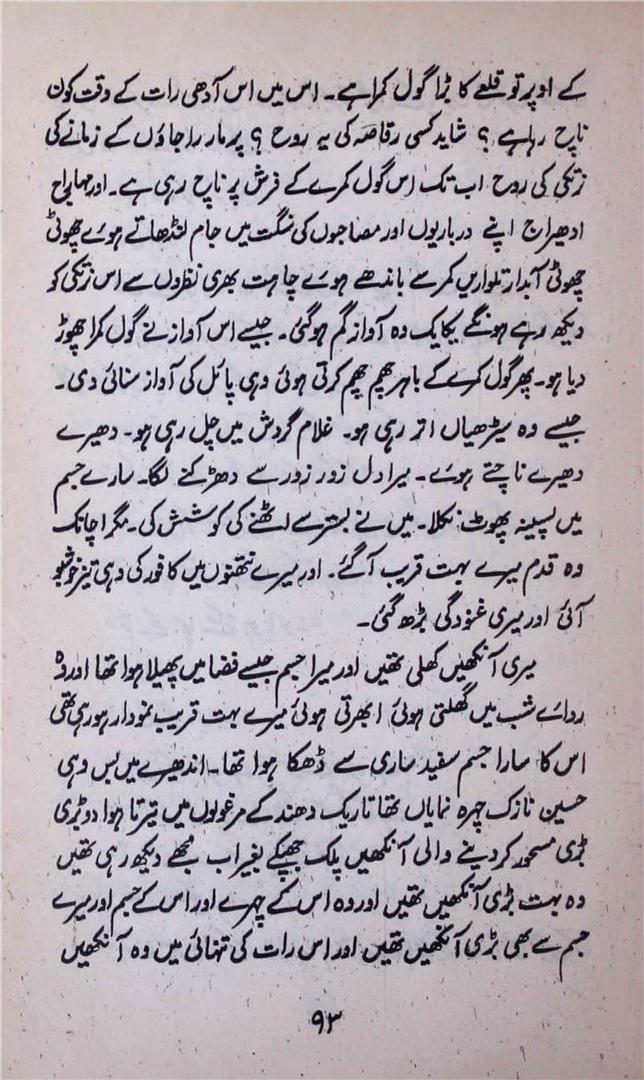 کے اوپر تو قلعے کا بڑا گول کمرا ہے۔ اس میں اس آدھی رات کے وقت کون
ناچ رہا ہے؟ شاید کسی رقاصہ کی یہ روح؟ پرمار راجاؤں کے زمانے کی
نرتکی کی روح اب تک اس گول کمرے کے فرش پر ناچ رہی ہے۔ اور مہاراج
ادھیراج اپنے درباریوں اور مصاحبوں کی سنگت میں جام لنڈھاتے ہوئے چھوٹی
چھوٹی آبدار تلواریں کمر سے باندھے ہوئے چاہت بھری نظروں سے اس نرتکی کو
دیکھ رہے ہونگے یکایک وہ آواز گم ہوگئی۔ جیسے اس آواز نے گول کمرا چھوڑ
دیا ہو۔ پھر گول کمرے کے باہر چھم چھم کرتی ہوئی وہی پائل کی آواز سنائی دی۔
جیسے وہ سیڑھیاں اتر رہی ہو۔ غلام گردش میں چل رہی ہو۔ دھیرے
دھیرے ناچتے ہوئے۔ میرا دل زور زور سے دھڑکنے لگا۔ سارے جسم
میں پسینہ پھوٹ نکلا۔ میں نے بستر سے اٹھنے کی کوشش کی۔ مگر اچانک
وہ قدم میرے بہت قریب آگئے۔ اور میرے نتھنوں میں کافور کی وہی تیز خوشبو
آئی اور میری غنودگی بڑھ گئی۔
میری آنکھیں کھلی تھیں اور میرا جسم جیسے فضا میں پھیلا ہوا تھا اور وہ
ردائے شب میں گھلتی ہوئی ابھرتی ہوئی میرے بہت قریب نمودار ہو رہی تھی
اس کا سارا جسم سفید ساری سے ڈھکا ہوا تھا۔ اندھیرے میں بس وہی
حسین نازک چہرہ نمایاں تھا تاریک دھند کے مرغولوں میں تیرتا ہوا دو بڑی
بڑی مسحور کر دینے والی آنکھیں پلک جھپکے بغیر اب مجھے دیکھ رہی تھیں
وہ بہت بڑی آنکھیں تھیں اور وہ اس کے چہرے اور اس کے جسم اور میرے
جسم سے بھی بڑی آنکھیں تھیں اور اس رات کی تنہائی میں وہ آنکھیں
۹۳